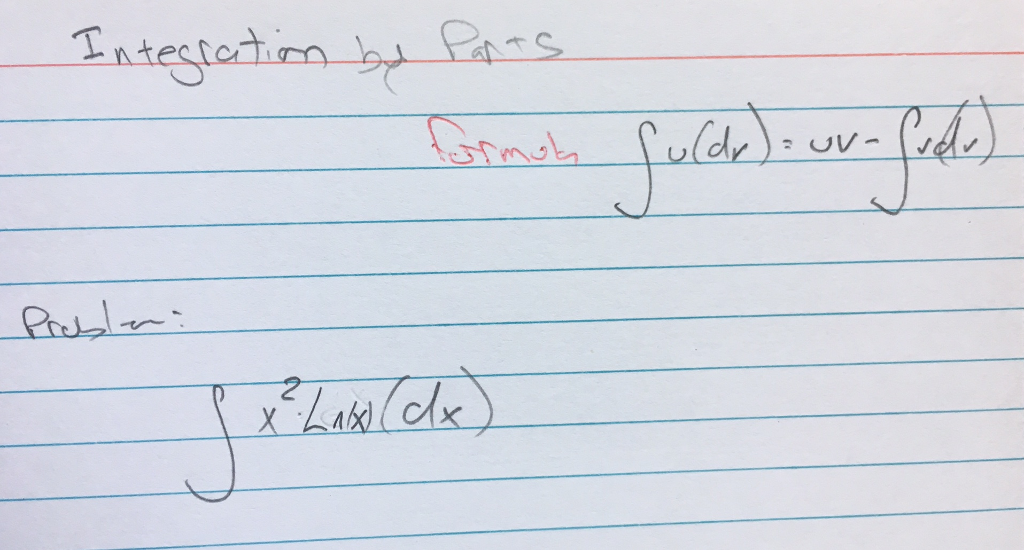 Integration by Parts
formula ∫u(dv) = uv - ∫v(dv)
Problem:
∫x²·Ln(x)(dx)